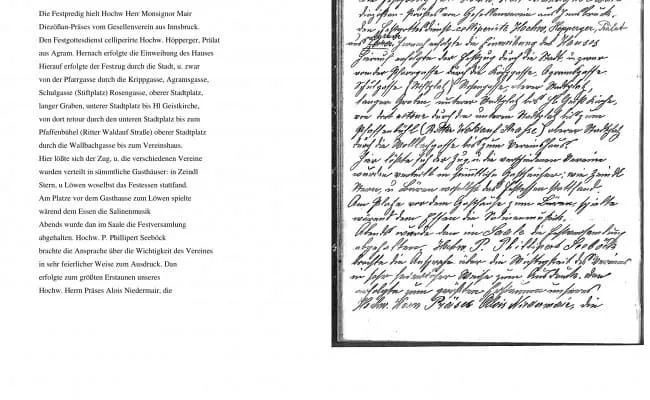 Die Festpredig hielt Hochw Herr Monsignor Mair
Diezößan-Präses vom Gesellenverein aus Innsbruck.
Den Festgottesdienst cellipeirte Hochw. Höpperger, Prülat
aus Agram. Hernach erfolgte die Einweibung des Hauses
Hierauf erfolgte der Festzug durch die Stadt, u. zwar
von der Pfarrgasse durch die Krippgasse, Agramsgasse,
Schulgasse (Stiftplatz) Rosengasse, oberer Stadtplatz,
langer Graben, unterer Stadtplatz bis Hl Geistkirche,
von dort retour durch den unteren Stadtplatz bis zum
Pfaffenbühel (Ritter Waldauf Straße) oberer Stadtplatz
durch die Wallbachgasse bis zum Vereinshaus.
Hier lößte sich der Zug, u. die verschiedenen Vereine
wurden verteilt in sümmtliche Gasthäuser: in Zeindl
Stern, u Löwen woselbst das Festessen stattfand.
Am Platze vor dem Gasthause zum Löwen spielte
wärend dem Essen die Salinenmusik
Abends wurde dan im Saale die Festversamlung
abgehalten. Hochw. P. Phillipert Seeböck
brachte die Ansprache über die Wichtigkeit des Vereines
in sehr feierlicher Weise zum Ausdruck. Dan
erfolgte zum größten Erstaunen unseres
Hochw. Herrn Präses Alois Niedermair, die
den Festgottesdienst Hochw. Höpperger, Prälat
aus
Hierauf erfolgte der Festzug durch die Stadt, u zwar
von der Pfarrgasse durch die Krippgasse, Agramsgasse
Schulgasse (Stiftplatz) Rosengasse, oberer Stadtplatz,
langer Graben, unterer Stadtplatz bis Hl Geistkirche,
von dort retour durch den unteren Stadtplatz bis zum
Pfaffenbühl (Ritter Waldauf Straße) oberer Stadtplatz
durch die Wallbachgasse bis zum Vereinshaus.
Hier lößte sich der Zug, u die verschiedenen Vereine
wurden verteilt in Gasthäuser: in Zeindl
Stern, u Löwen woselbst das Festessen stattfand.
Am Platze vor dem Gasthause zum Löwen spielte
wärend dem Essen die Salinenmusik
Abends wurde dan im Saale die Festversamlung
abgehalten. Hochw. P. Phillipert Seeböck
brachte die Ansprache über die Wichtigkeit des Vereines
in sehr feierlicher Weise zum Ausdruck. Dan
erfolgte zum größten Erstaunen unseres
Hochw. Herrn Präses Alois Niedermair, die